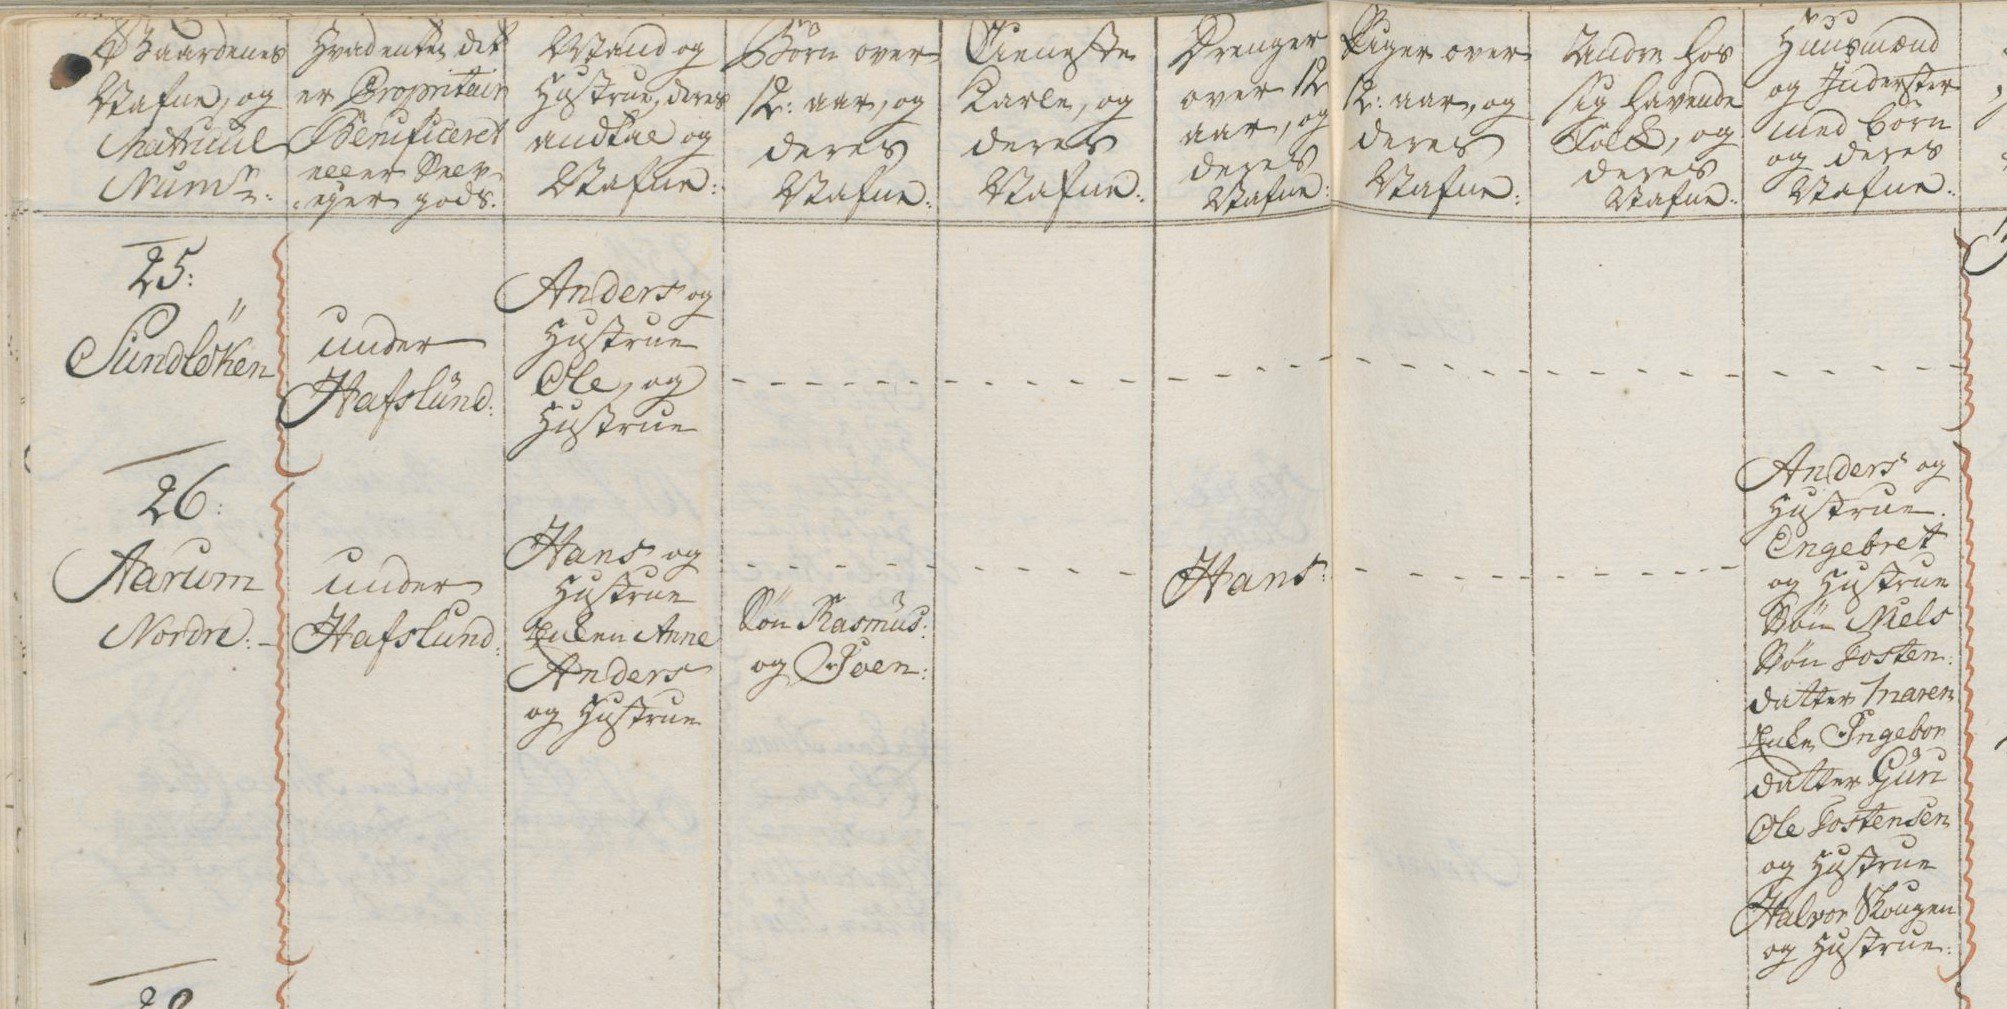 Gaardenes
Nafne, og
Matricul
Num:
Hvadenten det
er Propritair
Benificeret
eller Selv-
ejer gods.
Mand og
Hustrue, deres
andtal og
Nafne:
Børn over
12: aar, og
deres
Nafne:
Tieneste
Karle, og
deres
Nafne:
Drenger
over 12
aar, og
deres
Nafne:
Piger over
12: aar, og
deres
Nafne:
Andre hos
sig havende
Folk, og
deres
Nafne:
Huusmænd
og Inderster
med børn
og deres
Nafne:
25:
Sundløken
under
Hafslund:
Anders og
Hustrue
Ole, og
Hustrue
26:
Aarum
Nordre:
under
Hafslund:
Hans og
Hustrue
Enken Anne
Anders
og Hustrue
Søn Rasmus:
og Joen:
Hans:
Anders og
Hustrue.
Engebret
og Hustrue
Søn Niels
Søn Tosten:
datter Maren
Enke Ingebor
datter Guri
Ole Tostensen
og Hustrue
Halvor Skougen
og Hustrue: